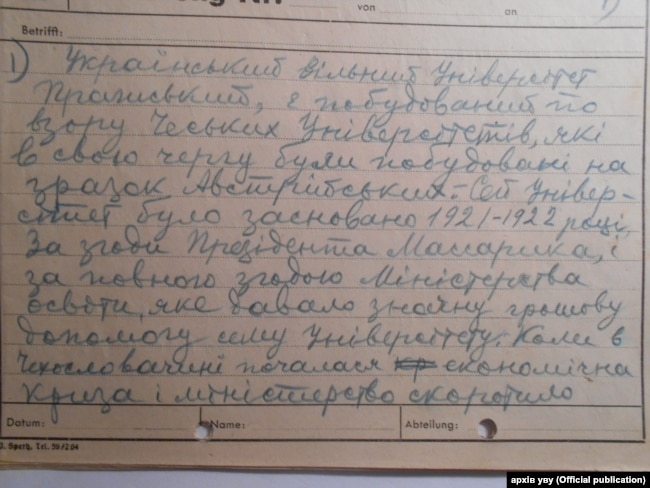 von an 1)
Betrifft:
1) Український вільний Університет
Пражський, є побудований по
взору Чеських Університетів, які
в свою чергу були побудовані на
зразок Австрійських. Сей Універ-
ситет було засновано 1921-1922 році,
За згоди Президента Массарика, і
за повного згодою Міністерства
освіти, яке давало значну грошову
допомогу сему Університету. Коли в
Чехословаччині почалася економічна
криза і міністерство скоротило
Datum: Name: Abteilung:
J. Sperth, Tel. 59204
архів уву (Official publication)